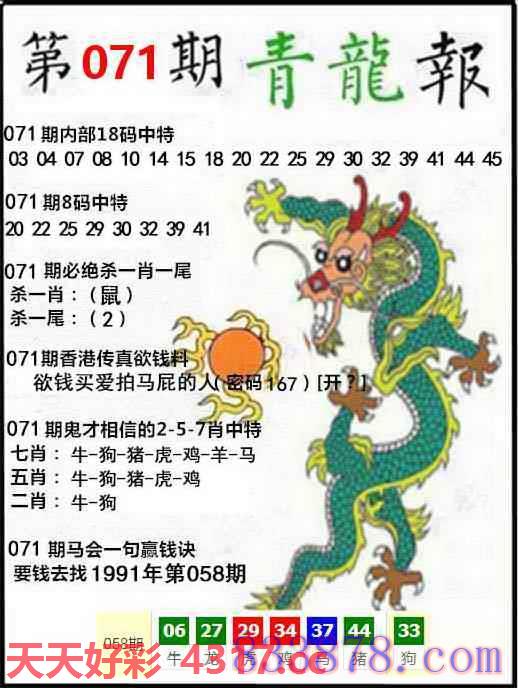 第071期青龍報
071期内部18码中特
03 04 07 08 10 14 15 18 20 22 25 29 30 32 39 41 44 45
071期8码中特
20 22 25 29 30 32 39 41
071 期必绝杀一肖一尾
杀一肖：（鼠）
杀一尾：（2）
071期香港传真欲钱料
欲钱买爱拍马屁的人(密码167)[开？]
071期鬼才相信的2-5-7肖中特
七肖：牛-狗-猪-虎-鸡-羊-马
五肖：牛-狗-猪-虎-鸡
二肖：牛-狗
071期马会一句赢钱诀
要钱去找1991年第058期
058期 06 27 29 34 37 44 33
牛 龙 虎 鸡 马 猪 狗
天天好彩 4317.cc
838878.com